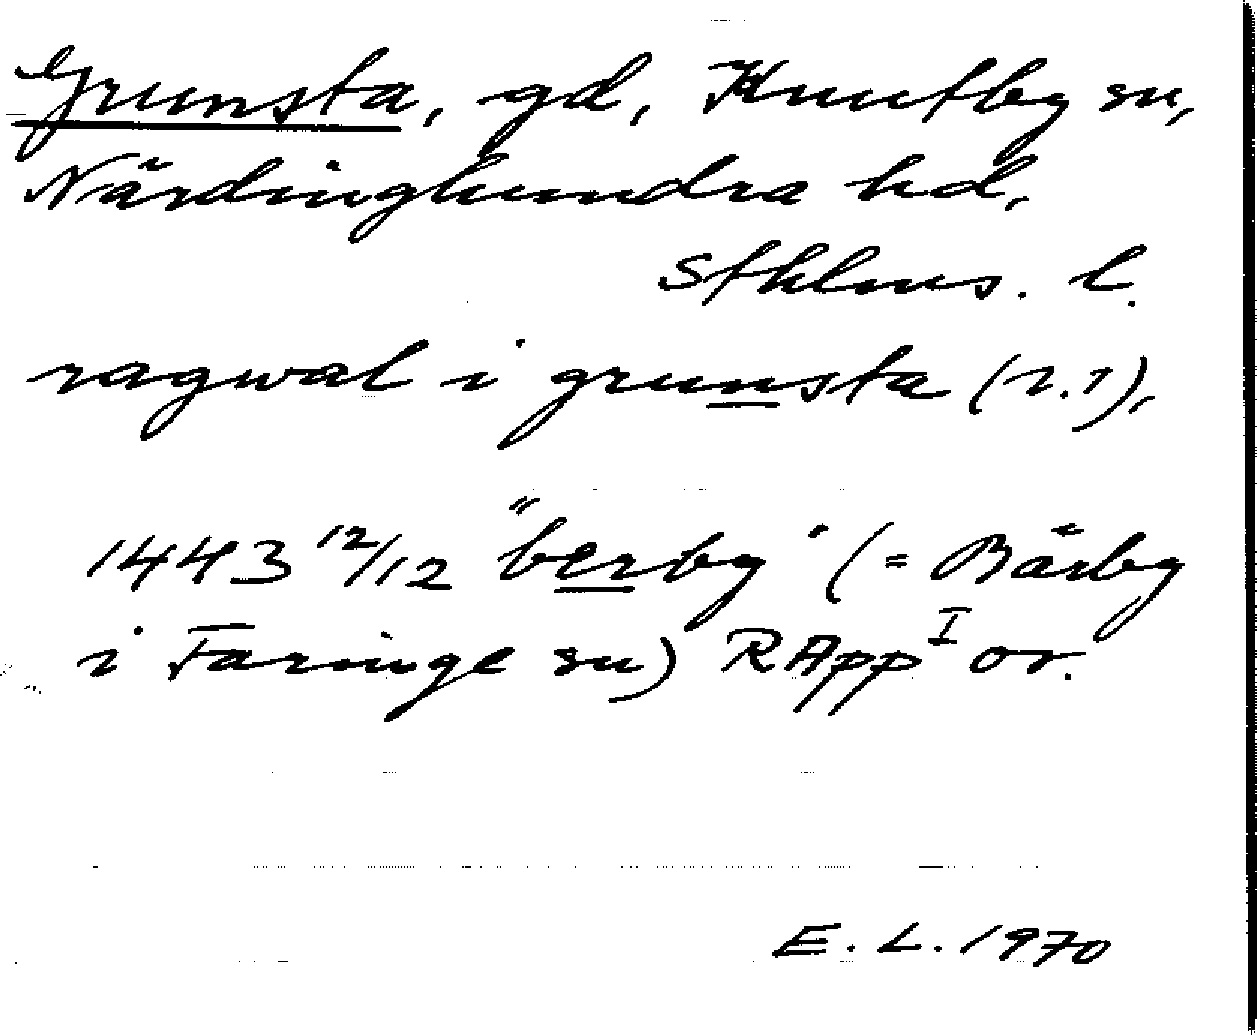 Grunsta, gd, Knutby sn,
Närdinghundra hd,
Sthlms. l.
ragwal i grunsta (r. 7),
1443 12/12 "berby" (= Bärby
i Faringe sn) RApp I or.
E. L. 1970